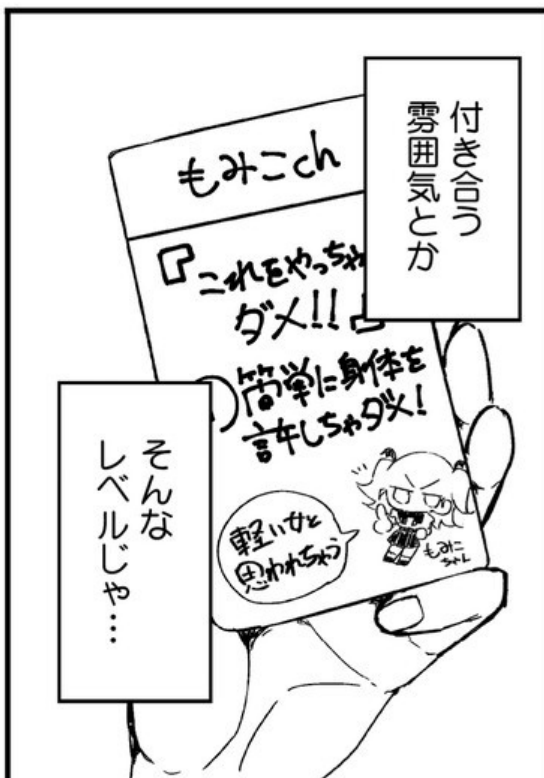 付き合う
雰囲気とか
もみこch
『これをやっちゃ
ダメ!!』
簡単に身体を
許しちゃダメ!
軽い女と
思われちゃう
もみこ
ちゃん
そんな
レベルじゃ…